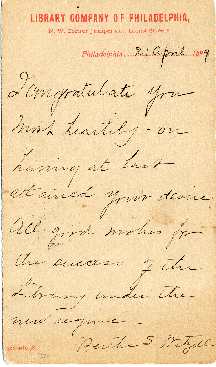 LIBRARY COMPANY OF PHILADELPHIA,
N. W. Corner Juniper and Locust Streets
Philadelphia, April 189
I Congratulate you
most heartily - on
having at last
attained your desire
All good wishes for
the success of the
Library under the
new regime -